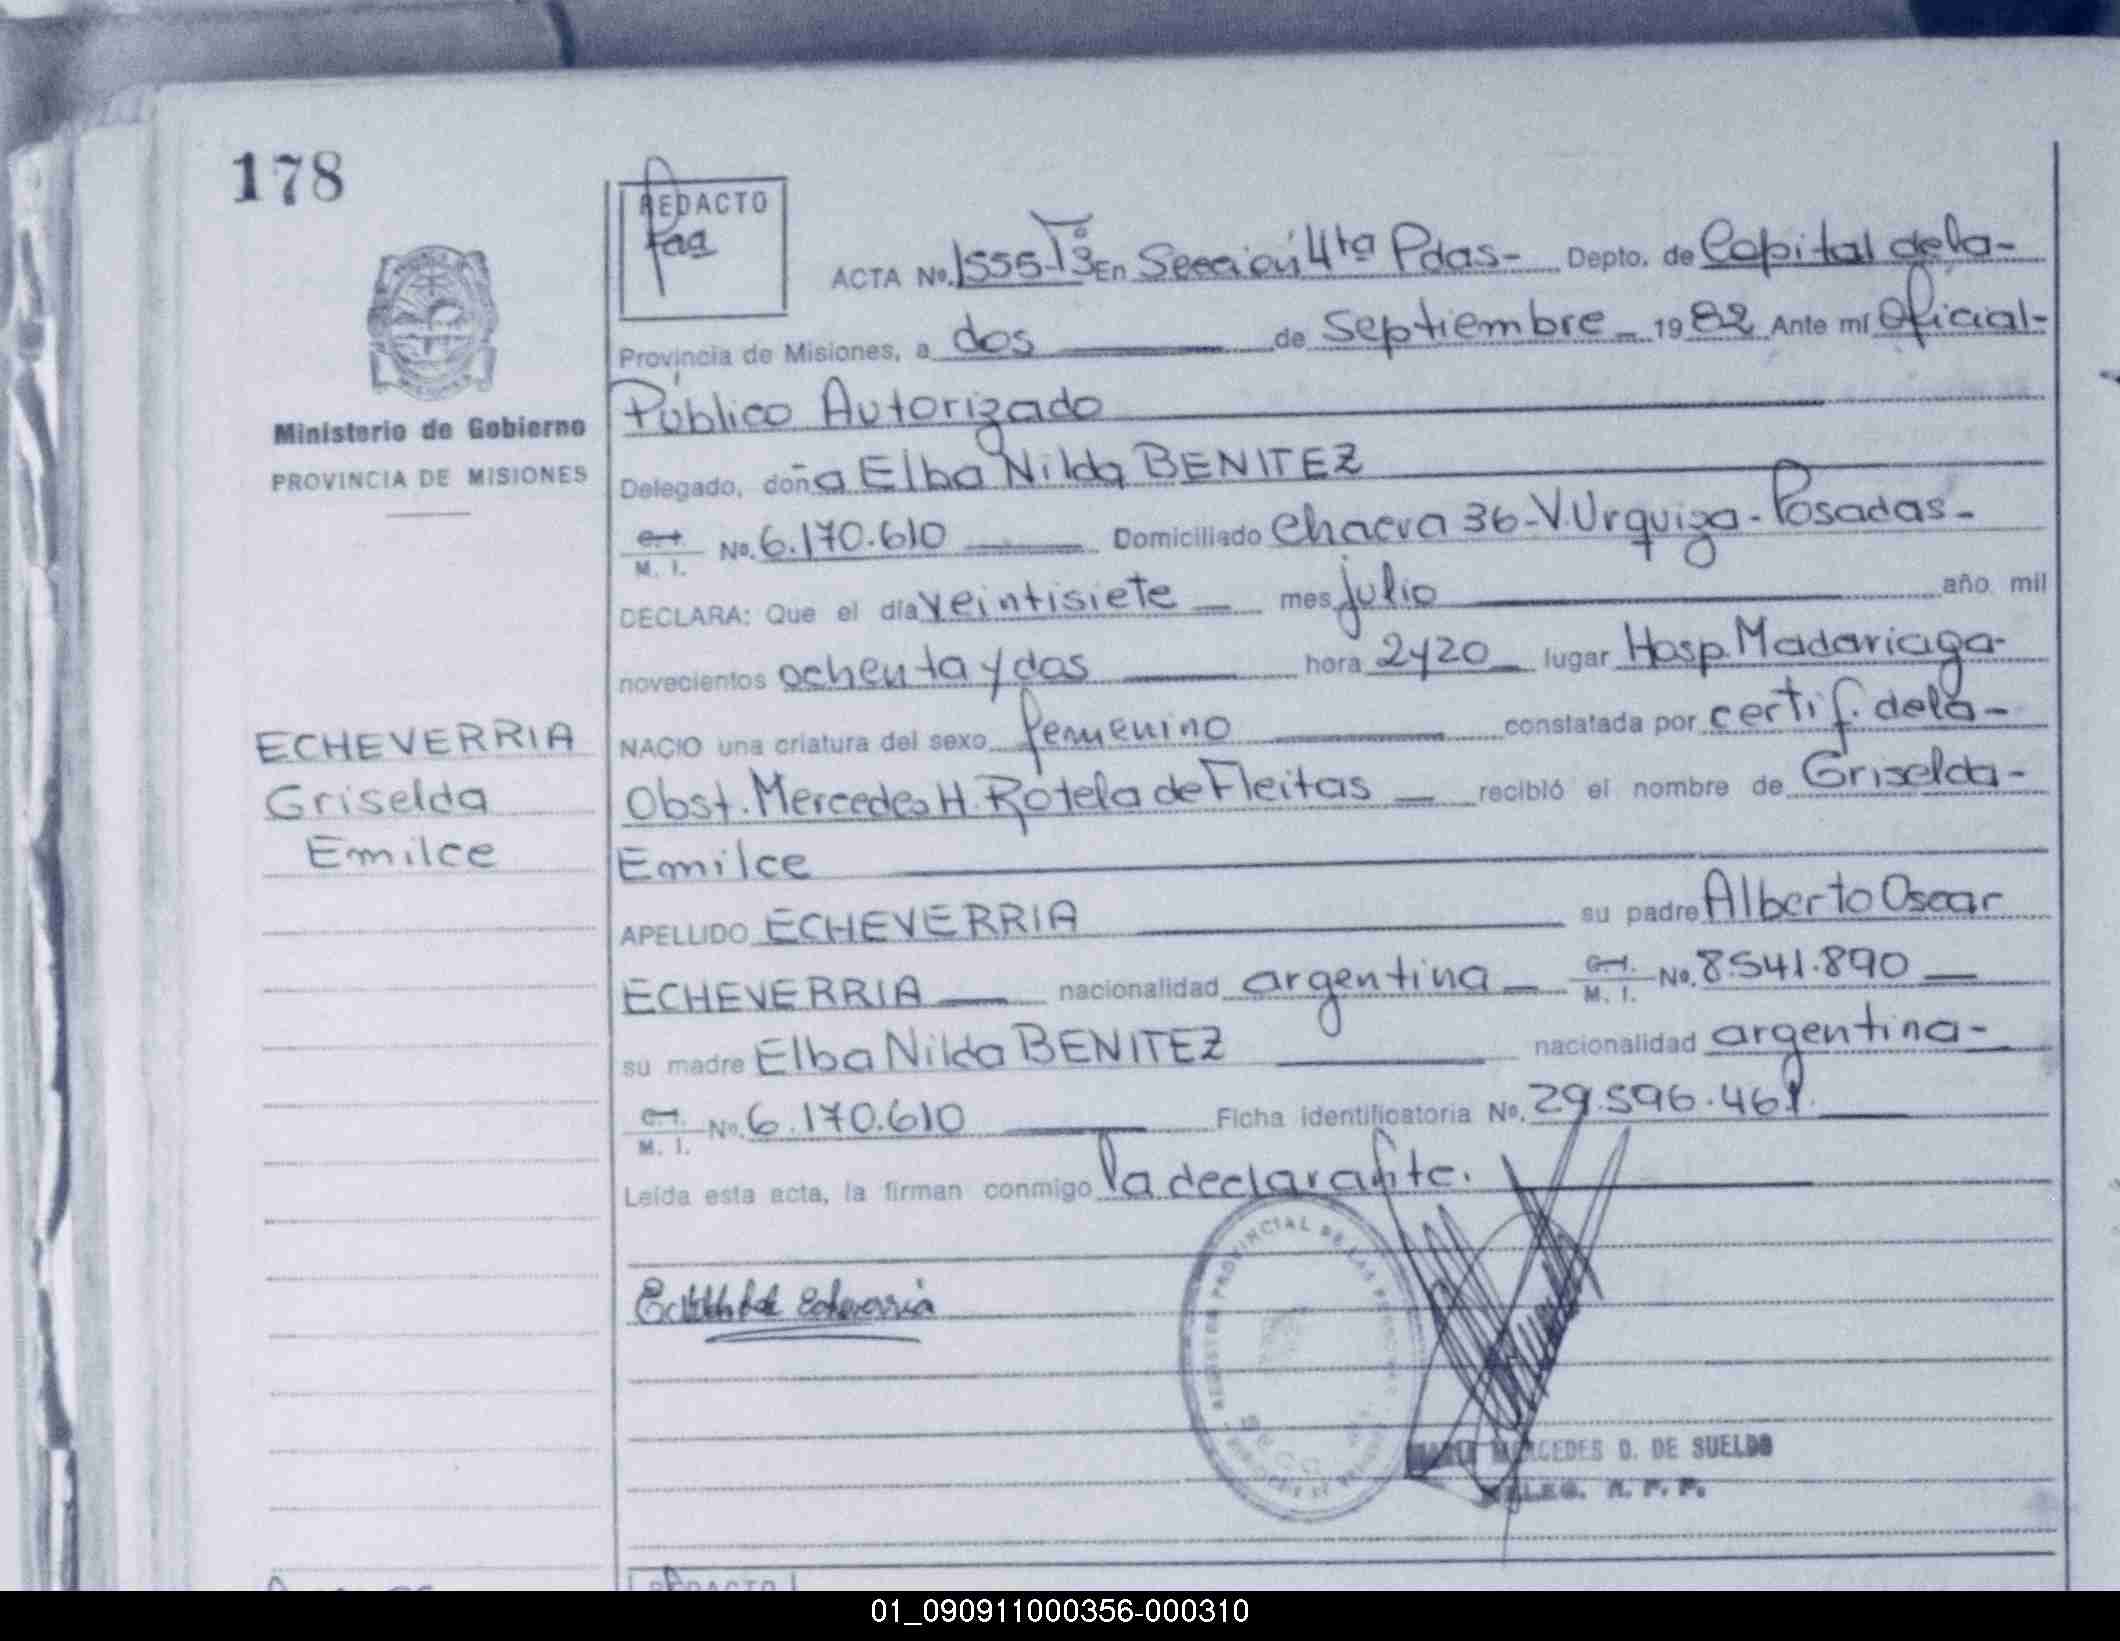 178
REDACTO
ACTA No. 1555-Tº3 En Sección 4ta Pdas- Depto. de Capital dela-
Provincia de Misiones, a dos de Septiembre - 1982 Ante mí Oficial-
Público Autorizado
Ministerio de Gobierno
PROVINCIA DE MISIONES
Delegado, doña Elba Nilda BENITEZ
M. I. No. 6.170.610 Domiciliado Chacra 36-V.Urquiza-Posadas-
DECLARA: Que el día veintisiete mes julio año mil
novecientos ochenta y dos hora 2y20 lugar Hosp. Madariaga-
NACIO una criatura del sexo femenino constatada por certif. dela-
Obst. Mercedes H. Rotela de Fleitas recibió el nombre de Griselda-
Emilce
ECHEVERRIA
Griselda
Emilce
APELLIDO ECHEVERRIA su padre Alberto Oscar
ECHEVERRIA nacionalidad argentina M. I. No. 8.541.890
su madre Elba Nilda BENITEZ nacionalidad argentina-
M. I. No. 6.170.610 Ficha identificatoria No. 29.596.461.
Leída esta acta, la firman conmigo la declarante.
Echeverria
REGISTRO PROVINCIAL DE LAS PERSONAS
MERCEDES D. DE SUELDO
R. P. P.
REDACTO
01_090911000356-000310